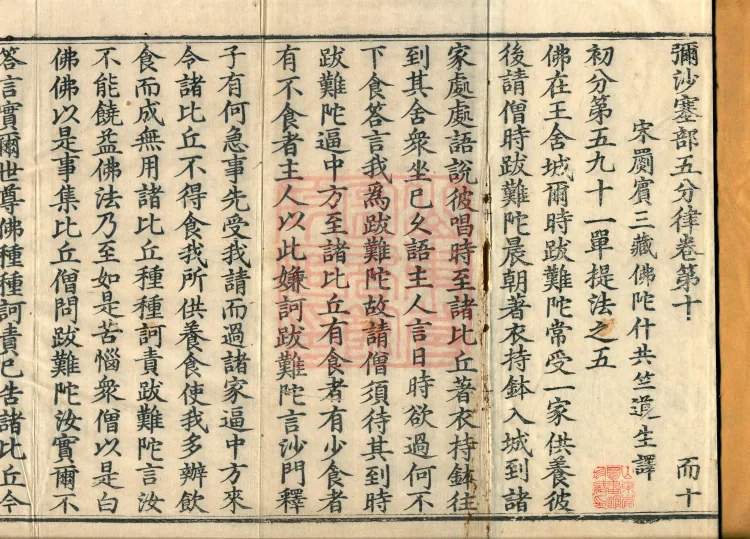 彌沙塞部五分律卷第十 而十
宋罽賓三藏佛陀什共竺道生譯
初分第五九十一單提法之五
佛在王舍城爾時跋難陀常受一家供養彼
後請僧時跋難陀晨朝著衣持鉢入城到諸
家處處語說彼唱時至諸比丘著衣持鉢往
到其舍衆坐已久語主人言日時欲過何不
下食荅言我爲跋難陀故請僧須待其到時
跋難陀逼中方至諸比丘有食者有少食者
有不食者主人以此嫌訶跋難陀言沙門釋
子有何急事先受我請而過諸家逼中方來
令諸比丘不得食我所供養食使我多辦飲
食而成無用諸比丘種種訶責跋難陀言汝
不能饒益佛法乃至如是苦惱衆僧以是白
佛佛以是事集比丘僧問跋難陀汝實爾不
荅言實爾世尊佛種種訶責已告諸比丘今